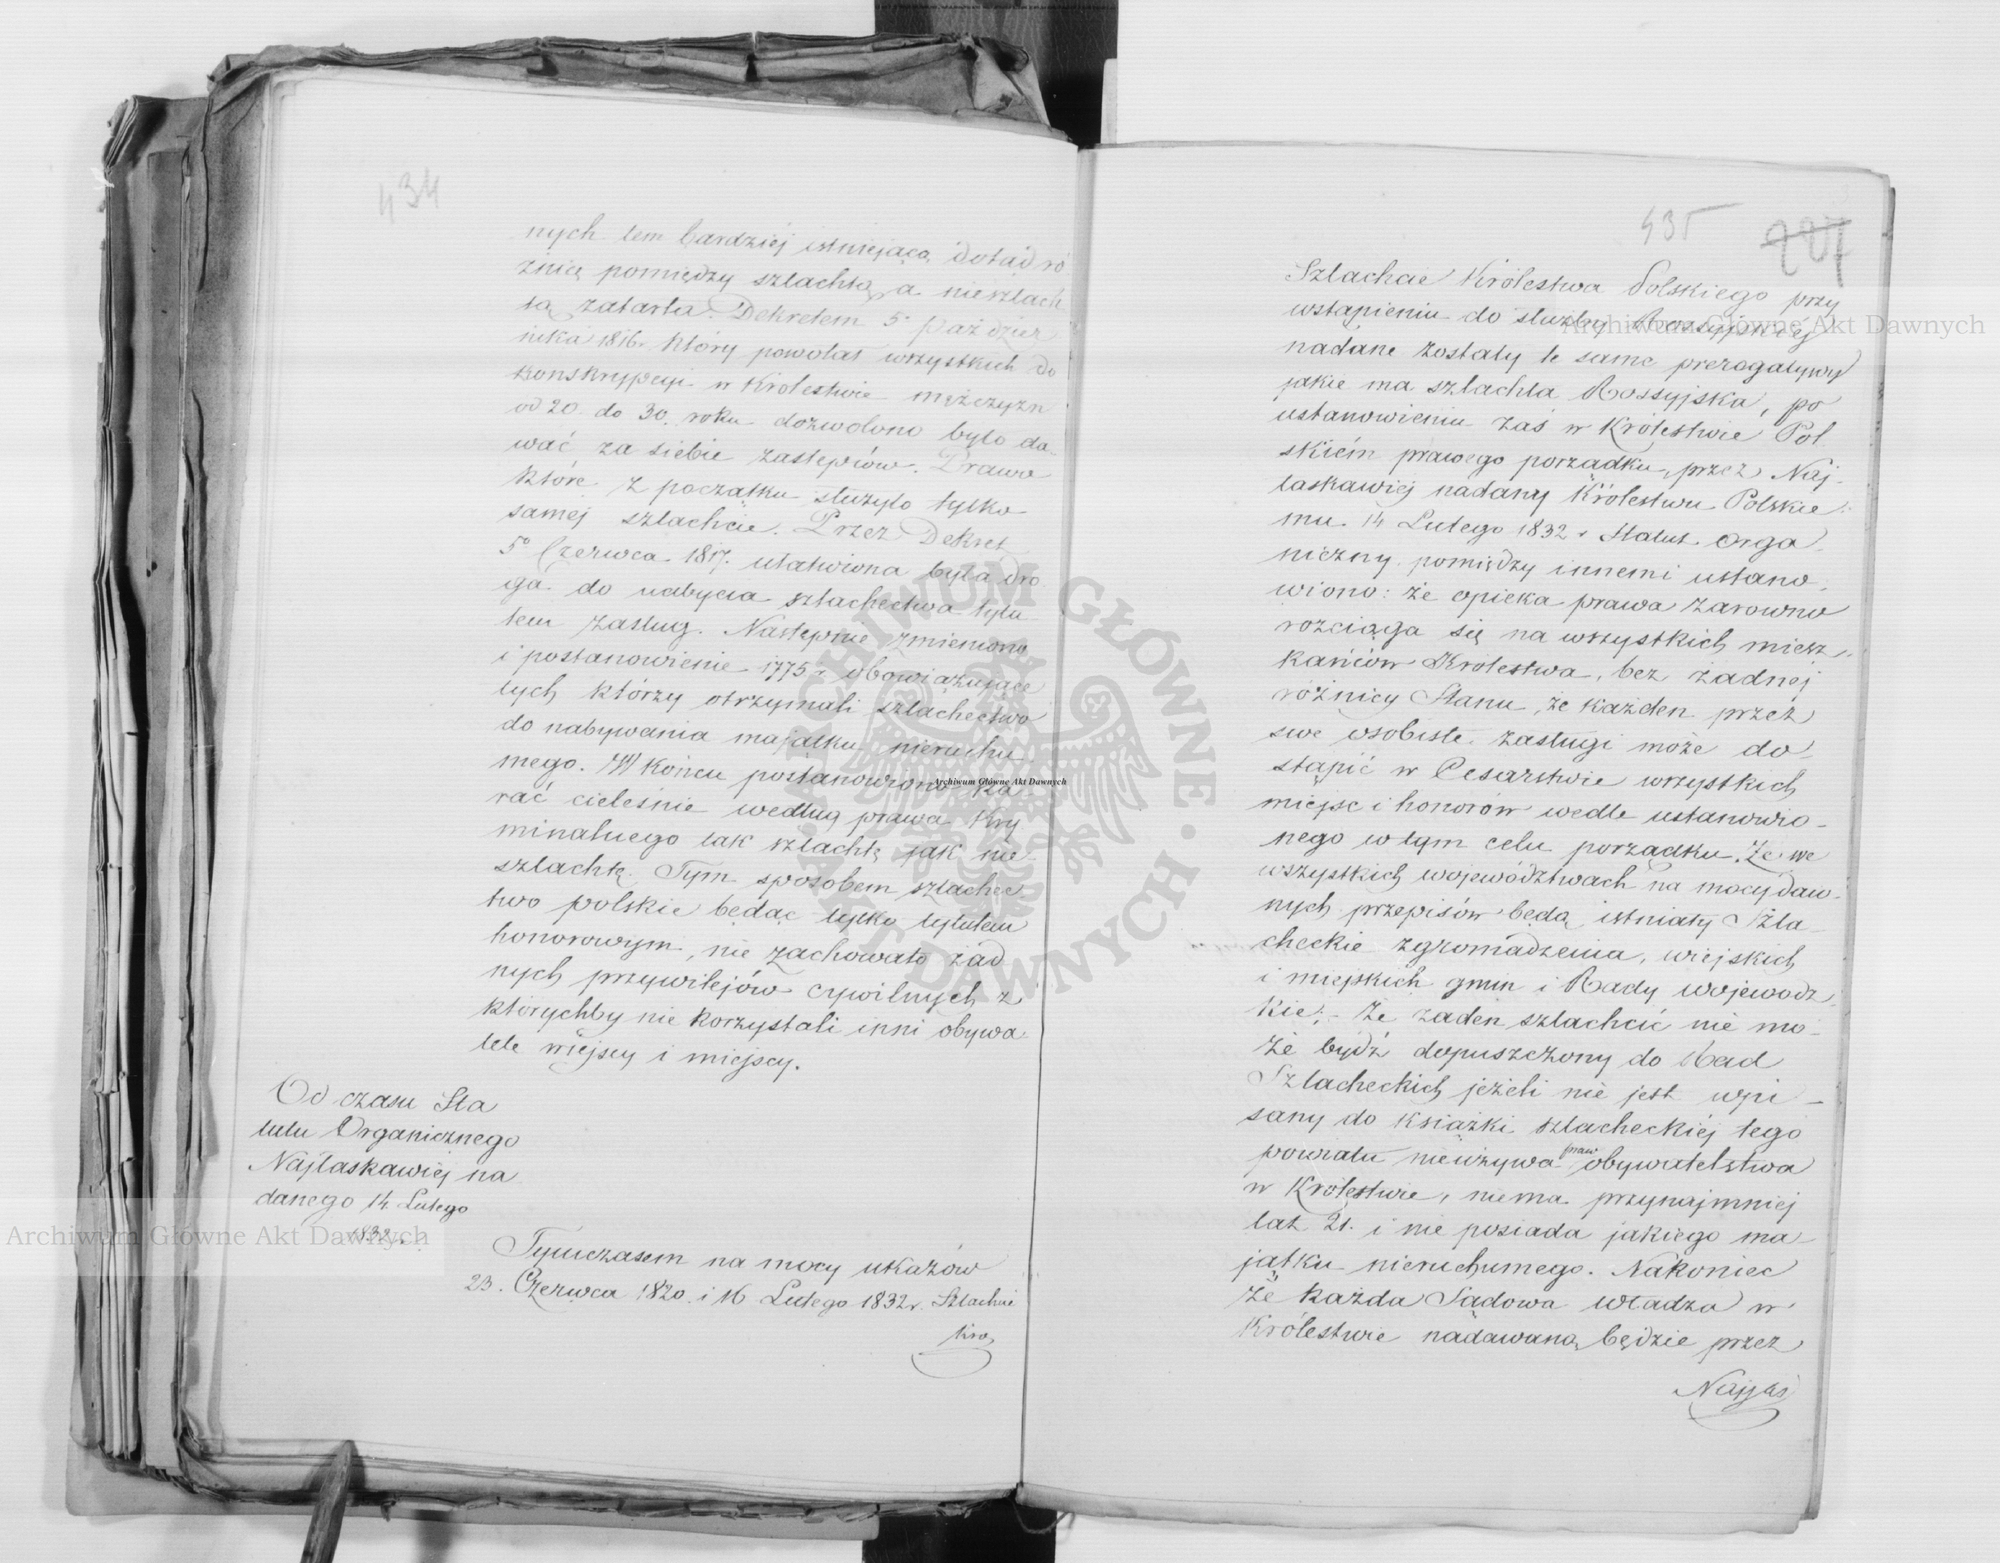 434
nych tem bardziéj istniejąca dotąd ró
żnica pomiędzy szlachtą a nieszlach
tą zatarta. Dekretem 5º Paździer
nika 1816 r. który powołał wszystkich do
konskrypcyi w Królestwie mężczyzn
od 20. do 30. roku dozwolono było da-
wać za siebie zastępców. Prawo
które z początku służyło tylko
samej szlachcie. Przez Dekret
5º Czerwca 1817. ułatwiona była dro
ga do nabycia szlachectwa tytu
łem zasług. Następnie zmieniono
i postanowienie 1775 r. obowiązujące
tych którzy otrzymali szlachectwo
do nabywania majątku nieruchu
mego. W końcu postanowiono ka
rać cieleśnie według prawa Kry
minalnego tak szlachtę jak nie-
szlachtę. Tym sposobem szlachec
two polskie będąc tylko tytułem
honorowym, nie zachowało żad
nych przywilejów cywilnych z
którychby nie korzystali inni obywa
tele wiejscy i miejscy.
Od czasu Sta
tutu Organicznego
Najłaskawiej na
danego 14 Lutego
1832 r.
Tymczasem na mocy ukazów
23. Czerwca 1820. i 16 Lutego 1832 r. Szlachcie
Kró
435
227
Szlachcie Królestwa Polskiego przy
wstąpieniu do służby Rossyjskiéj
nadane zostały te same prerogatywy
jakie ma szlachta Rossyjska, po
ustanowieniu zaś w Królestwie Pol
skiém prawego porządku, przez Naj-
łaskawiej nadany Królestwu Polskie-
mu 14 Lutego 1832 r Statut Orga-
niczny pomiędzy innemi ustano-
wiono: że opieka prawa zarówno
rozciąga się na wszystkich miesz-
kańców Królestwa, bez żadnej
różnicy Stanu, że każden przez
swe osobiste zasługi może do-
stąpić w Cesarstwie wszystkich
miejsc i honorów wedle ustanowio-
nego w tym celu porządku. Że we
wszystkich województwach na mocy daw-
nych przepisów będą istniały Szla-
checkie zgromadzenia, wiejskich
i miejskich gmin i Rady wojewódz
kie; - Że żaden szlachcic nie mo-
że bydź dopuszczony do Rad
Szlacheckich jeżeli nie jest wpi-
sany do książki szlacheckiéj tego
powiatu nieużywa praw obywatelstwa
w Królestwie, niema przynajmniej
lat 21. i nie posiada jakiego ma-
jątku nieruchumego. Nakoniec
że każda Sądowa władza w
Królestwie nadawaną będzie przez
Najjaś
Archiwum Główne Akt Dawnych
Archiwum Główne Akt Dawnych
Archiwum Główne Akt Dawnych
ARCHIWUM GŁÓWNE · AKT DAWNYCH ·